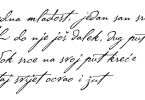 dna mladost, jedan san s
do nje još dalek, dug put
ok srce na svoj put kreće
taj svijet ocvao i žut